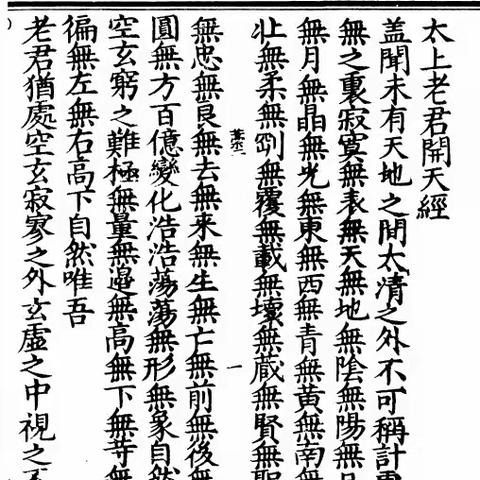 太上老君開天經
蓋聞未有天地之間太清之外不可稱計
無之裏寂寞無表無天無地無陰無陽無
無月無晶無光無東無西無青無黃無南無
壯無柔無剛無覆無載無壞無藏無賢無
一
無忠無良無去無來無生無亡無前無後無
圓無方百億變化浩浩蕩蕩無形無象自然
空玄窮之難極無量無邊無高無下無等無
徧無左無右高下自然唯吾
老君猶處空玄寂寥之外玄虛之中視之